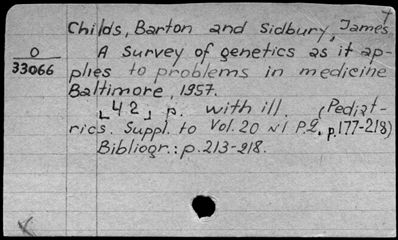 Childs, Barton and Sidbury, James
O
33066
A survey of genetics as it ap-
plies to problems in medicine
Baltimore, 1957.
⌞42⌟ p. with ill. (Pediat-
rics. Suppl. to Vol. 20 N1 P.2. p. 177-218)
Bibliogr.: p. 213-218.